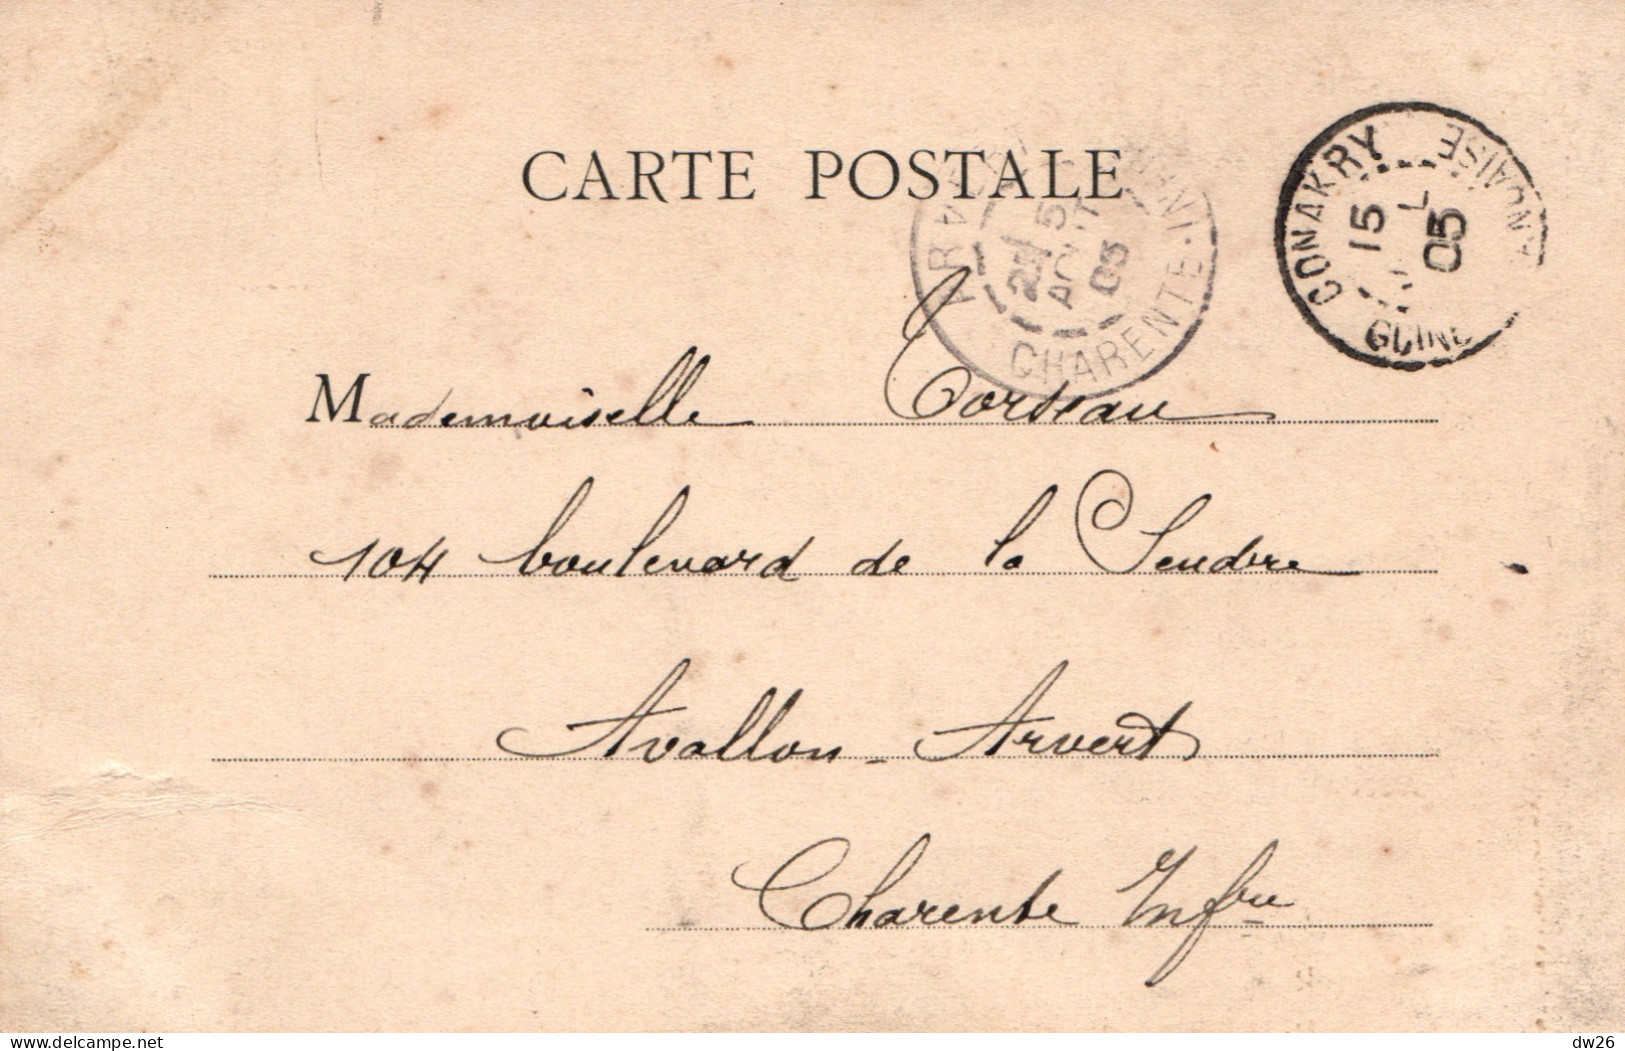 CARTE POSTALE
ARVERT
2E/ 5
AOUT
05
CHARENTE-INFRE
CONAKRY
15
05
GUINE
Mademoiselle Corseau
104 boulevard de la Seudre
Avallon - Arvert
Charente Infre
delcampe.net
dw26